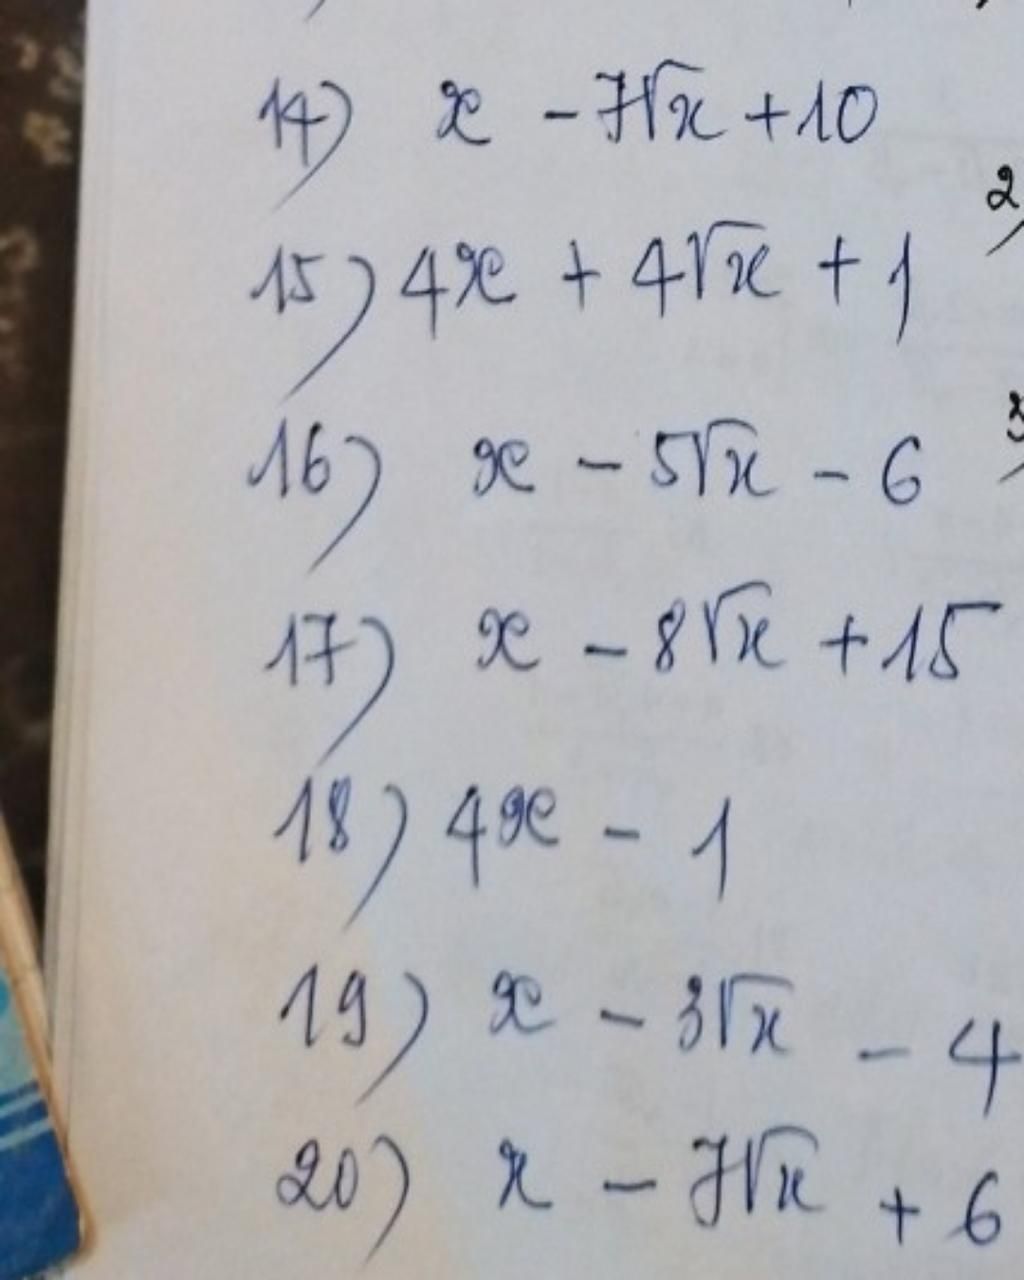 14) x - 7√x + 10
2)
15) 4x + 4√x + 1
16) x - 5√x - 6
3)
17) x - 8√x + 15
18) 4x - 1
19) x - 3√x - 4
20) x - 7√x + 6